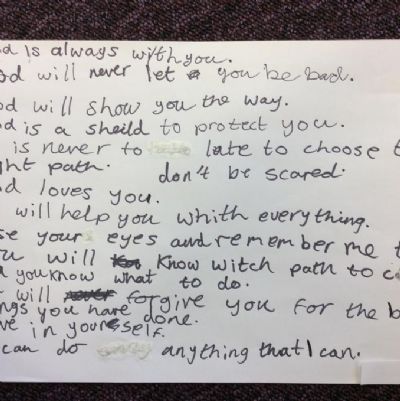 d is always with you.
od will never let you be bad.
od will show you the way.
od is a sheild to protect you.
is never to late to choose t
ght path. don't be scared.
d loves you.
will help you whith everything.
se your eyes and remember me t
ou will know witch path to c
d you know what to do.
will forgive you for the b
ngs you have done.
ve in yourself.
can do anything that I can.